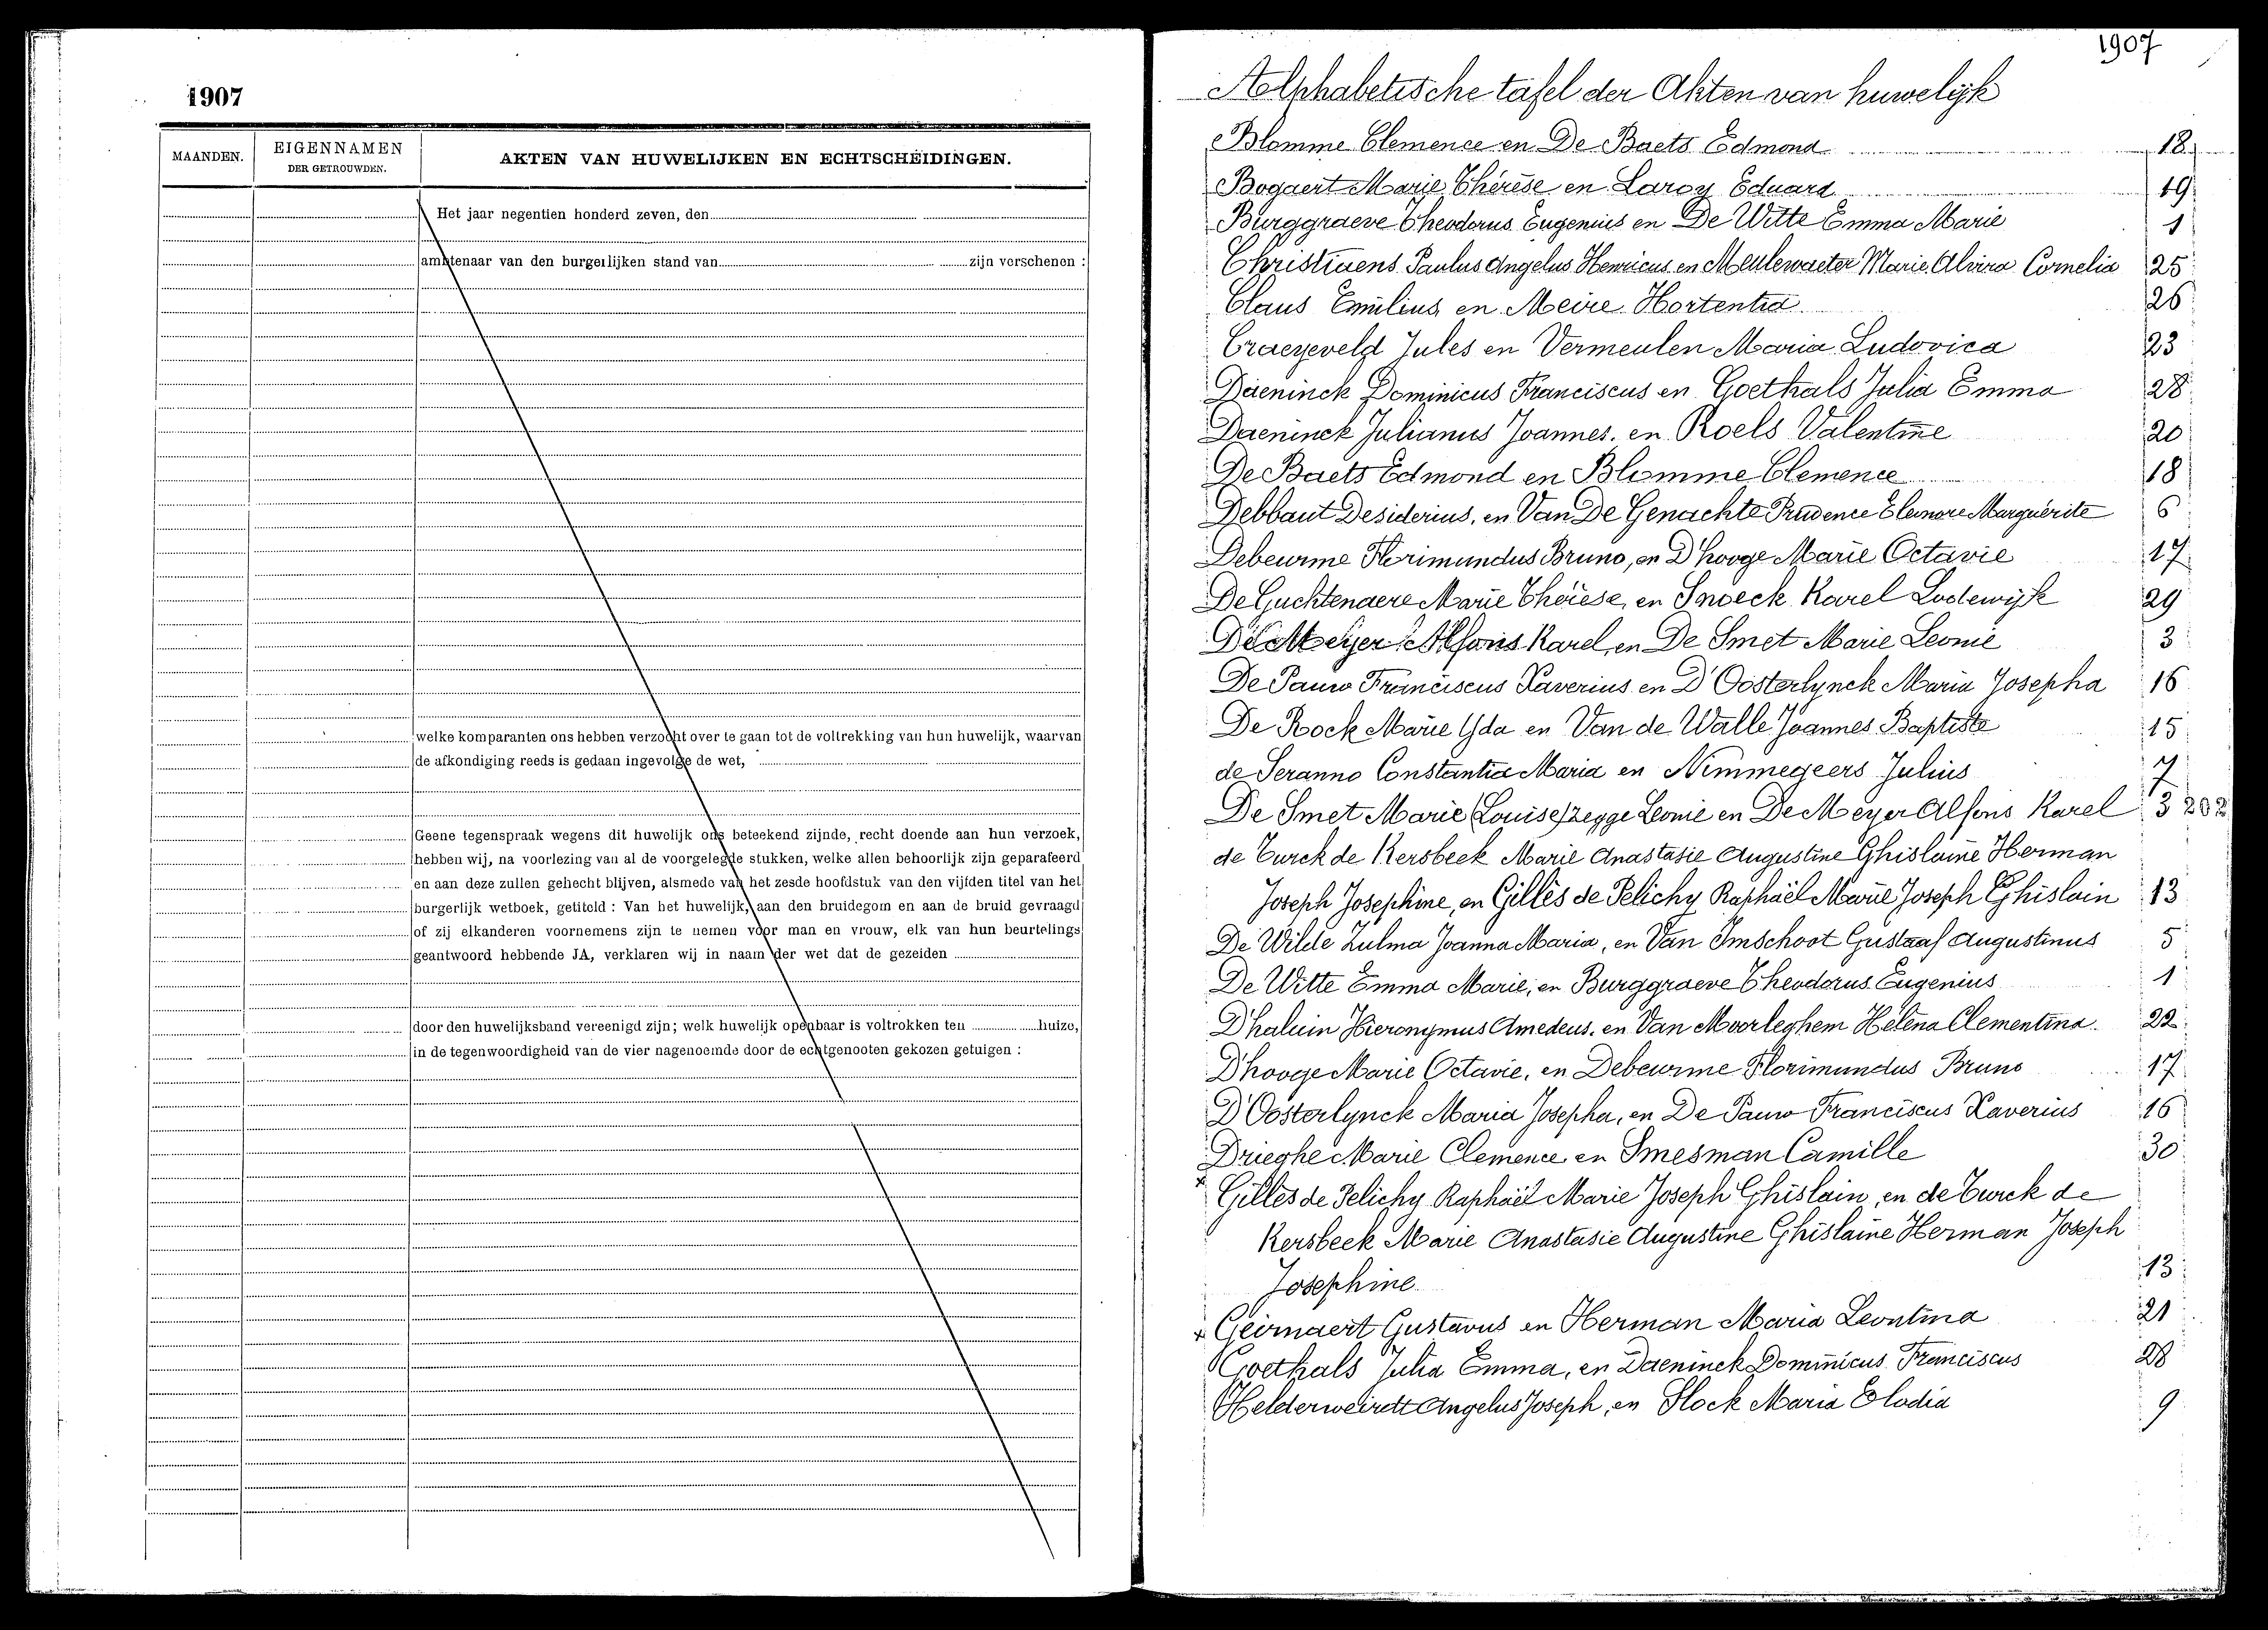 1907
MAANDEN.
EIGENNAMEN
DER GETROUWDEN.
AKTEN VAN HUWELIJKEN EN ECHTSCHEIDINGEN.
Het jaar negentien honderd zeven, den
ambtenaar van den burgerlijken stand van zijn verschenen :
welke komparanten ons hebben verzocht over te gaan tot de voltrekking van hun huwelijk, waarvan
de afkondiging reeds is gedaan ingevolge de wet,
Geene tegenspraak wegens dit huwelijk ons beteekend zijnde, recht doende aan hun verzoek,
hebben wij, na voorlezing van al de voorgelegde stukken, welke allen behoorlijk zijn geparafeerd
en aan deze zullen gehecht blijven, alsmede van het zesde hoofdstuk van den vijfden titel van het
burgerlijk wetboek, getiteld : Van het huwelijk, aan den bruidegom en aan de bruid gevraagd
of zij elkanderen voornemens zijn te nemen voor man en vrouw, elk van hun beurtelings
geantwoord hebbende JA, verklaren wij in naam der wet dat de gezeiden
door den huwelijksband vereenigd zijn; welk huwelijk openbaar is voltrokken ten huize,
in de tegenwoordigheid van de vier nagenoemde door de echtgenooten gekozen getuigen :
1907
Alphabetische tafel der Akten van huwelijk
Blomme Clemence en De Baets Edmond 18
Bogaert Marie Thérèse en Laroy Eduard 19
Burggraeve Theodorus Eugenius en De Witte Emma Marie 1
Christiaens Paulus Angelus Henricus en Meulewaeter Marie Alvira Cornelia 25
Claus Emilius en Meire Hortentia 26
Craeyeveld Jules en Vermeulen Maria Ludovica 23
Daeninck Dominicus Franciscus en Goethals Julia Emma 28
Daeninck Julianus Joannes. en Roels Valentine 20
De Baets Edmond en Blomme Clemence 18
Debbaut Desiderius, en Van De Genachte Prudence Eleonore Marguérite 6
Debeurme Florimundus Bruno, en D'hooge Marie Octavie 17
De Guchtenaere Marie Thérèse, en Snoeck Karel Lodewijk 29
De Meyer Alfons Karel, en De Smet Marie Leonie 3
De Pauw Franciscus Xaverius en D'Oosterlynck Maria Josepha 16
De Rock Marie Yda en Van de Walle Joannes Baptiste 15
de Seranno Constantia Maria en Nimmegeers Julius 7
De Smet Marie (Louise) zegge Leonie en De Meyer Alfons Karel 3 202
de Turck de Kersbeek Marie Anastasie Augustine Ghislaine Herman
Joseph Josephine, en Gillès de Pelichy Raphaël Marie Joseph Ghislain 13
De Wilde Zulma Joanna Maria, en Van Imschoot Gustaaf Augustinus 5
De Witte Emma Marie, en Burggraeve Theodorus Eugenius 1
D'haluin Hieronymus Amedeus. en Van Moorleghem Helena Clementina. 22
D'hooge Marie Octavie, en Debeurme Florimundus Bruno 17
D'Oosterlynck Maria Josepha, en De Pauw Franciscus Xaverius 16
Drieghe Marie Clemence en Smesman Camille 30
x Gillès de Pelichy Raphaël Marie Joseph Ghislain, en de Turck de
Kersbeek Marie Anastasie Augustine Ghislaine Herman Joseph
Josephine 13
x Geirnaert Gustavus en Herman Maria Leontina 21
Goethals Julia Emma, en Daeninck Dominicus Franciscus 28
Helderweirdt Angelus Joseph, en Slock Maria Elodia 9